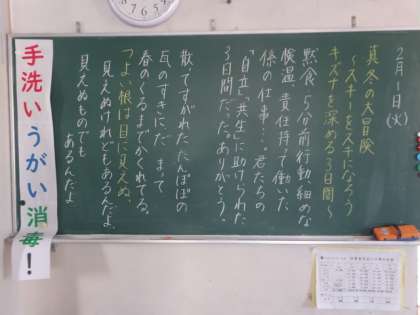 2月1日(火)
真冬の大冒険
～スキーを人子になろう
キズナを深める3日間～
黙食、5分前行動、細めな
検温、責任持って働いた
係の仕事…。君たちの
「自立」「共生」に助けられた
3日間だった。ありがとう。
散てすがれたたんぽぽの
瓦のすきにだまって
春のくるまでかくれてる、
つよい根は目に見えぬ。
見えぬけれどもあるんだよ、
見えぬものでも
あるんだよ
手洗いうがい消毒!